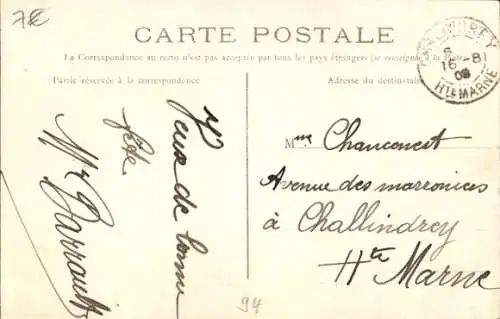 7€
CARTE POSTALE
La Correspondance au recto n'est pas acceptée par tous les pays étrangers (se renseigner à la Poste)
Partie réservée à la correspondance
Adresse du destinataire
CHALINDREY
16 - 8
08
HTE MARNE
Voeux de bonne
fête
Mr Parrault
Mme Chanconest
Avenue des marroniers
à Challindrey
Hte Marne
94